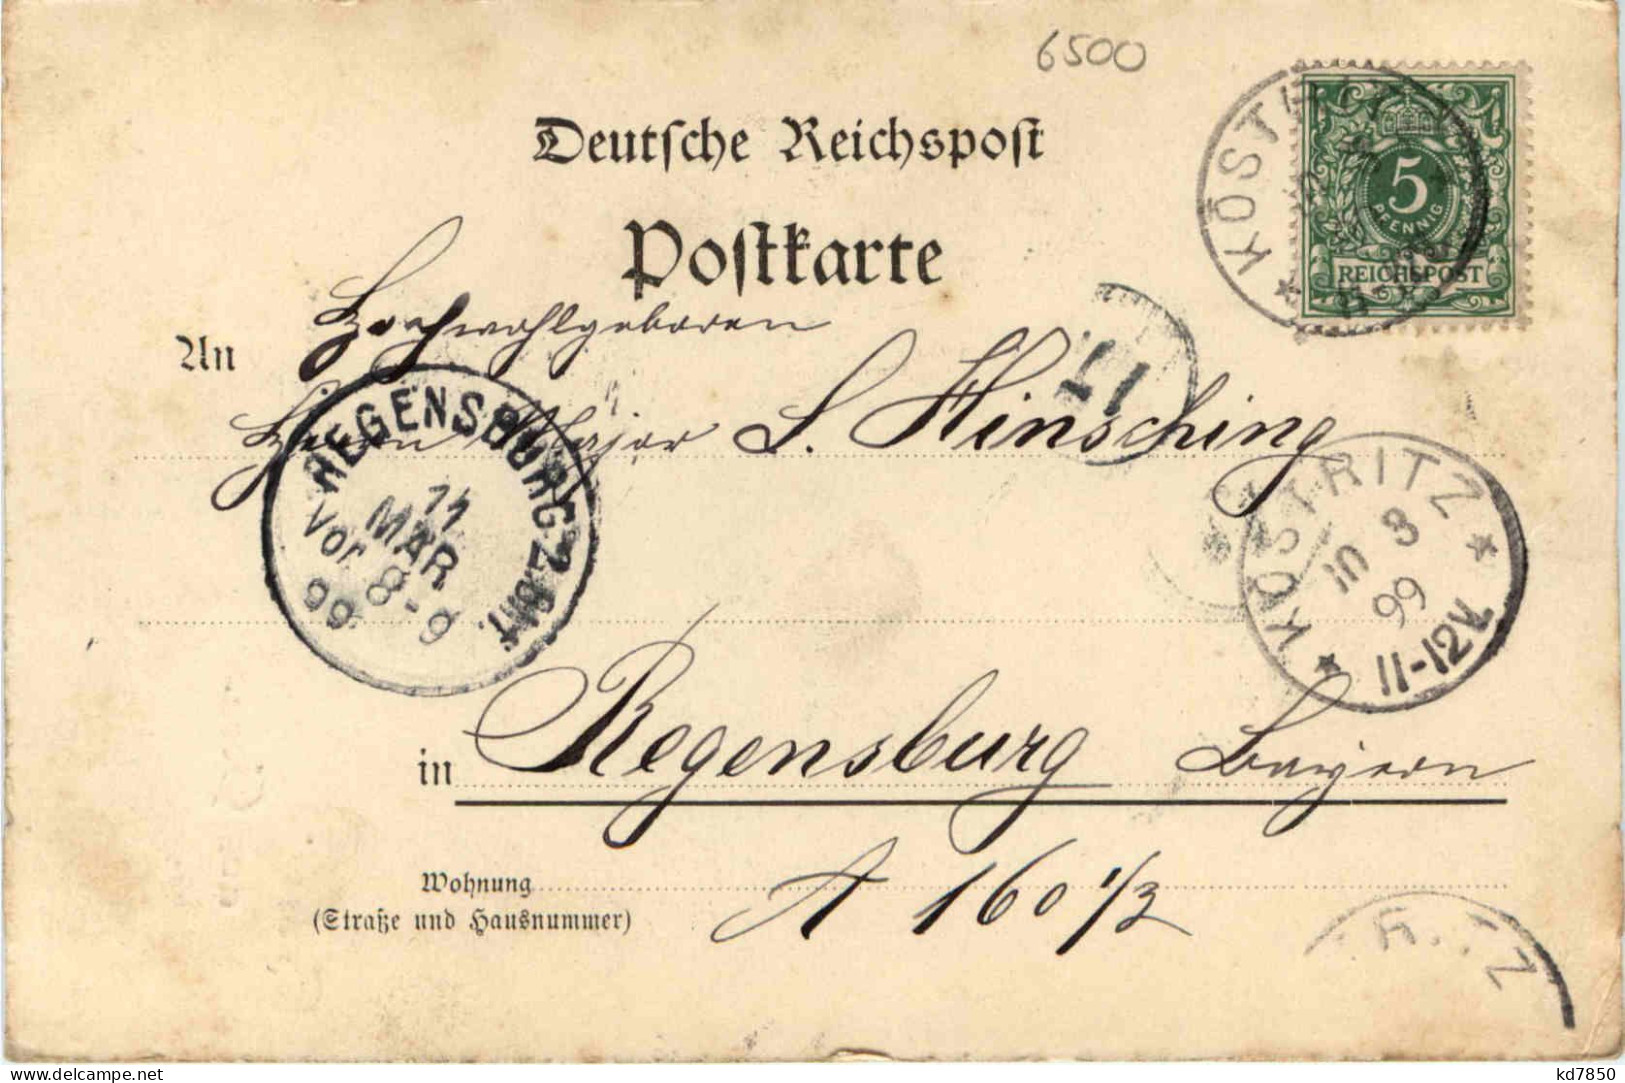 6500
Deutsche Reichspost
Postkarte
KÖSTRITZ
5
PFENNIG
REICHSPOST
An Hochwohlgeboren
Herrn Major L. Hinsching
REGENSBURG 2. BHF.
11
MAR
Vor 8-9
99
KÖSTRITZ
10 3
99
11-12V.
in Regensburg Bayern
Wohnung A 160 1/2
(Straße und Hausnummer)
delcampe.net
kd7850